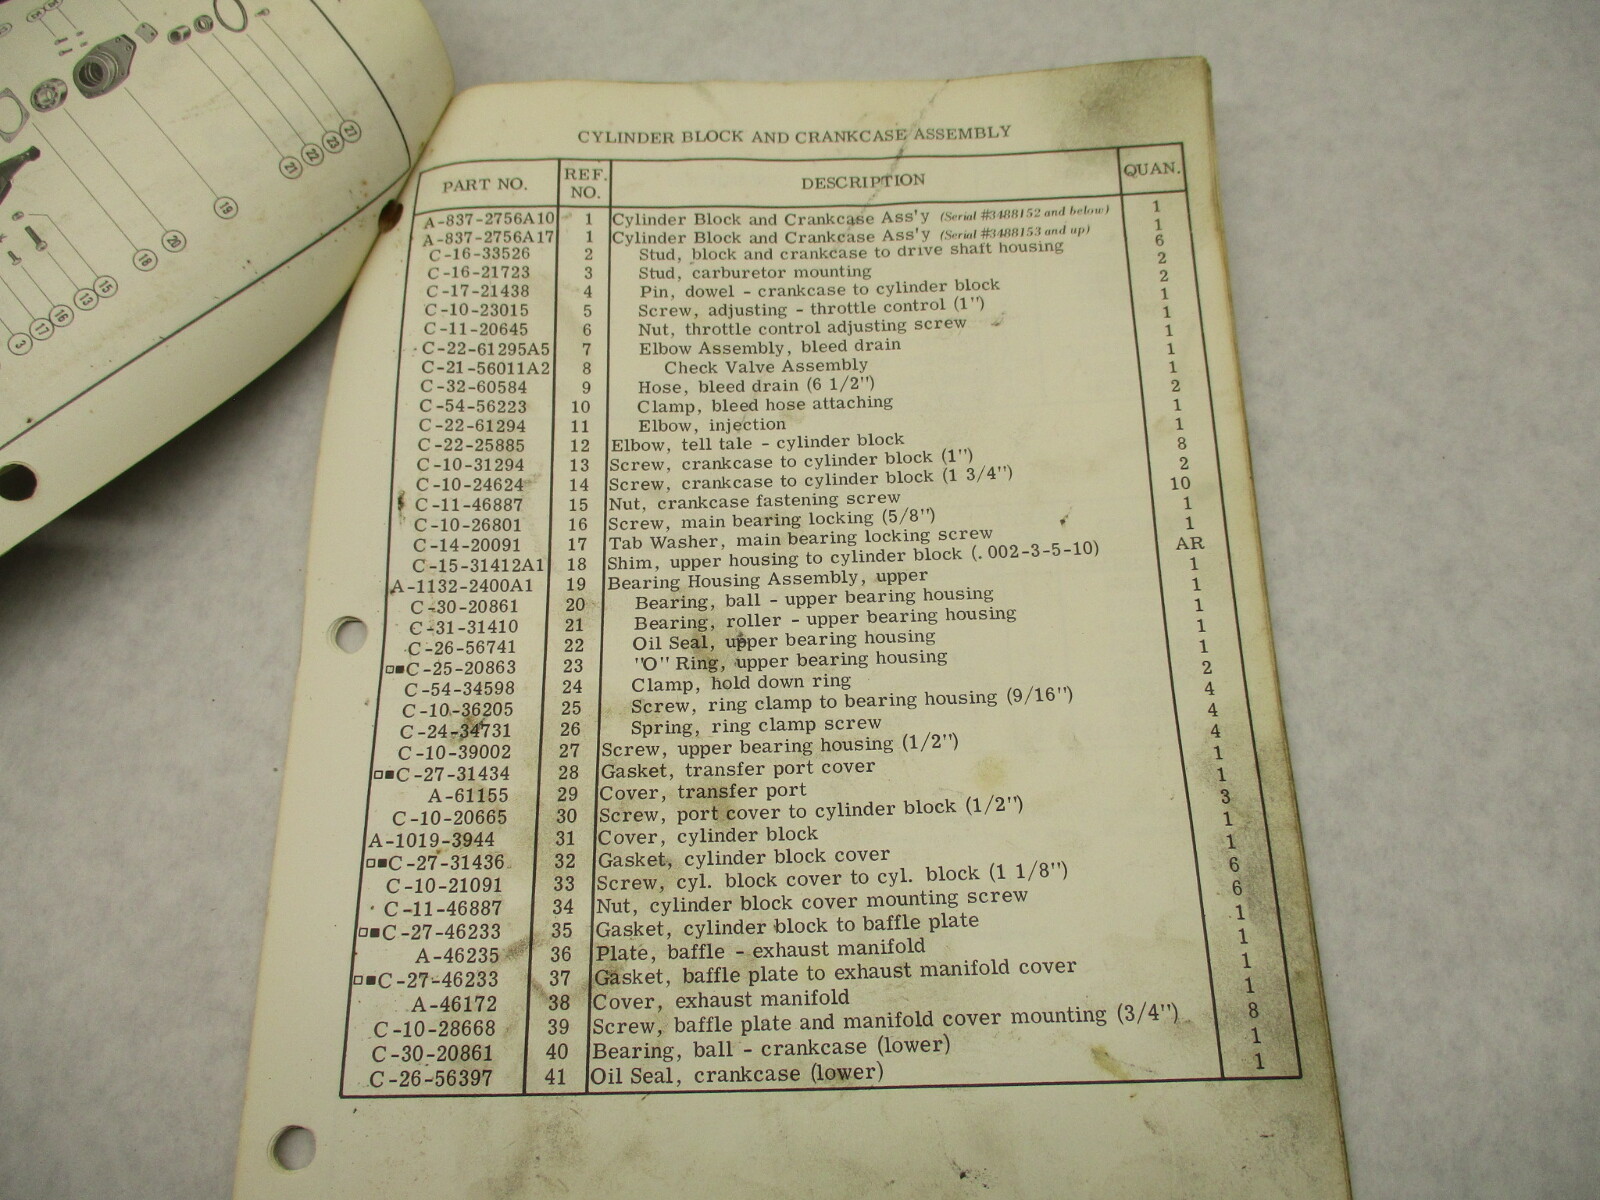 21
22
23
21
19
20
18
15
13
16
17
3
CYLINDER BLOCK AND CRANKCASE ASSEMBLY
PART NO. REF. NO. DESCRIPTION QUAN.
A-837-2756A10 1 Cylinder Block and Crankcase Ass'y (Serial #3488152 and below) 1
A-837-2756A17 1 Cylinder Block and Crankcase Ass'y (Serial #3488153 and up) 1
C-16-33526 2 Stud, block and crankcase to drive shaft housing 6
C-16-21723 3 Stud, carburetor mounting 2
C-17-21438 4 Pin, dowel - crankcase to cylinder block 2
C-10-23015 5 Screw, adjusting - throttle control (1") 1
C-11-20645 6 Nut, throttle control adjusting screw 1
C-22-61295A5 7 Elbow Assembly, bleed drain 1
C-21-56011A2 8 Check Valve Assembly 1
C-32-60584 9 Hose, bleed drain (6 1/2") 1
C-54-56223 10 Clamp, bleed hose attaching 2
C-22-61294 11 Elbow, injection 1
C-22-25885 12 Elbow, tell tale - cylinder block 1
C-10-31294 13 Screw, crankcase to cylinder block (1") 8
C-10-24624 14 Screw, crankcase to cylinder block (1 3/4") 2
C-11-46887 15 Nut, crankcase fastening screw 10
C-10-26801 16 Screw, main bearing locking (5/8") 1
C-14-20091 17 Tab Washer, main bearing locking screw 1
C-15-31412A1 18 Shim, upper housing to cylinder block (.002-3-5-10) AR
A-1132-2400A1 19 Bearing Housing Assembly, upper 1
C-30-20861 20 Bearing, ball - upper bearing housing 1
C-31-31410 21 Bearing, roller - upper bearing housing 1
C-26-56741 22 Oil Seal, upper bearing housing 1
□■C-25-20863 23 "O" Ring, upper bearing housing 1
C-54-34598 24 Clamp, hold down ring 2
C-10-36205 25 Screw, ring clamp to bearing housing (9/16") 4
C-24-34731 26 Spring, ring clamp screw 4
C-10-39002 27 Screw, upper bearing housing (1/2") 4
□■C-27-31434 28 Gasket, transfer port cover 1
A-61155 29 Cover, transfer port 1
C-10-20665 30 Screw, port cover to cylinder block (1/2") 3
A-1019-3944 31 Cover, cylinder block 1
□■C-27-31436 32 Gasket, cylinder block cover 1
C-10-21091 33 Screw, cyl. block cover to cyl. block (1 1/8") 6
C-11-46887 34 Nut, cylinder block cover mounting screw 6
□■C-27-46233 35 Gasket, cylinder block to baffle plate 1
A-46235 36 Plate, baffle - exhaust manifold 1
□■C-27-46233 37 Gasket, baffle plate to exhaust manifold cover 1
A-46172 38 Cover, exhaust manifold 1
C-10-28668 39 Screw, baffle plate and manifold cover mounting (3/4") 8
C-30-20861 40 Bearing, ball - crankcase (lower) 1
C-26-56397 41 Oil Seal, crankcase (lower) 1